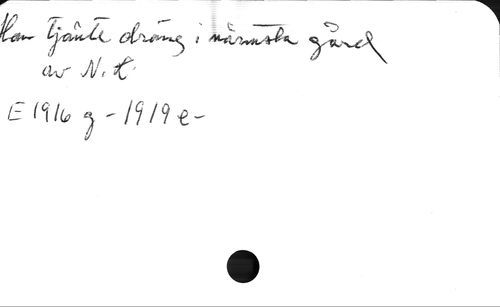 Han tjänte dräng i närmsta gård
av N. H.
E 1916 g - 1919 e-